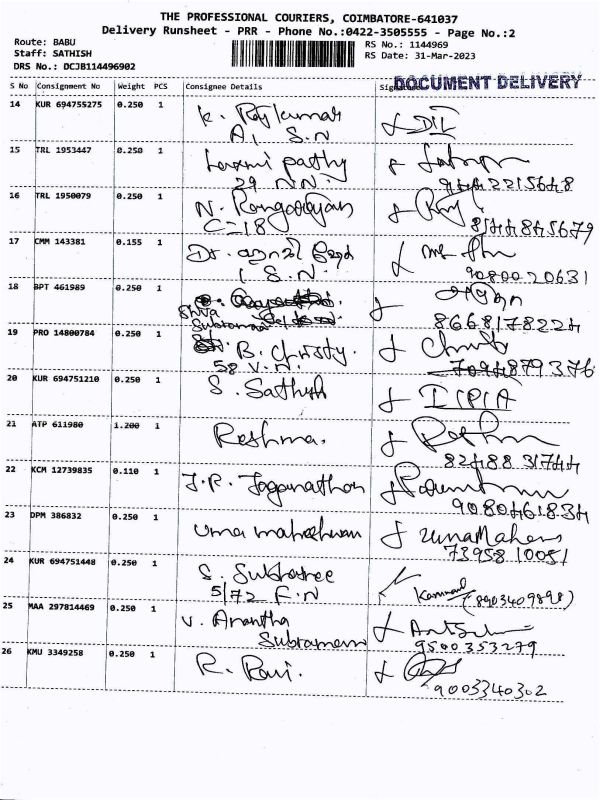 THE PROFESSIONAL COURIERS, COIMBATORE-641037
Delivery Runsheet - PRR - Phone No.:0422-3505555 - Page No.:2
Route: BABU
Staff: SATHISH
DRS No.: DCJB114496902
RS No.: 1144969
RS Date: 31-Mar-2023
S No Consignment No Weight PCS Consignee Details
DOCUMENT DELIVERY
14 KUR 694755275 0.250 1 K. Rajkumar
A1 S.N
15 TRL 1953447 0.250 1 Laxmi pathy
29 N N. 9442215648
16 TRL 1950079 0.250 1 N. Rangarajan
C-18 8544845679
17 CMM 143381 0.155 1 Dr.
1 S.N. 9080020631
18 BPT 461989 0.250 1
Shiva
Subraman 8668178224
19 PRO 14800784 0.250 1 B. Christy.
58 V.N. 7094879376
20 KUR 694751210 0.250 1 S. Sathish
21 ATP 611980 1.200 1 Reshma.
82488 31744
22 KCM 12739835 0.110 1 J.R. Jaganathan
9080461834
23 DPM 386832 0.250 1 Uma maheshwari UmaMahes
73958 10051
24 KUR 694751448 0.250 1 S. Subhasree
5/72 F.N (8903409898)
25 MAA 297814469 0.250 1 V. Anantha
Subramani 9500353279
26 KMU 3349258 0.250 1 R. Ravi.
9003340302